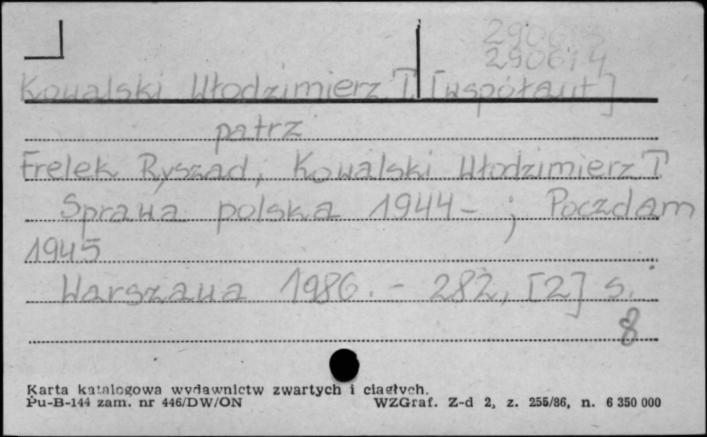 290613
290614
Kowalski Włodzimierz T. [współaut]
patrz
Frelek Ryszad, Kowalski Włodzimierz T.
Sprawa polska 1944 - ; Poczdam
1945
Warszawa 1986. - 282, [2] s.
8
Karta katalogowa wydawnictw zwartych i ciągłych.
Pu-B-144 zam. nr 446/DW/ON WZGraf. Z-d 2, z. 255/86, n. 6 350 000